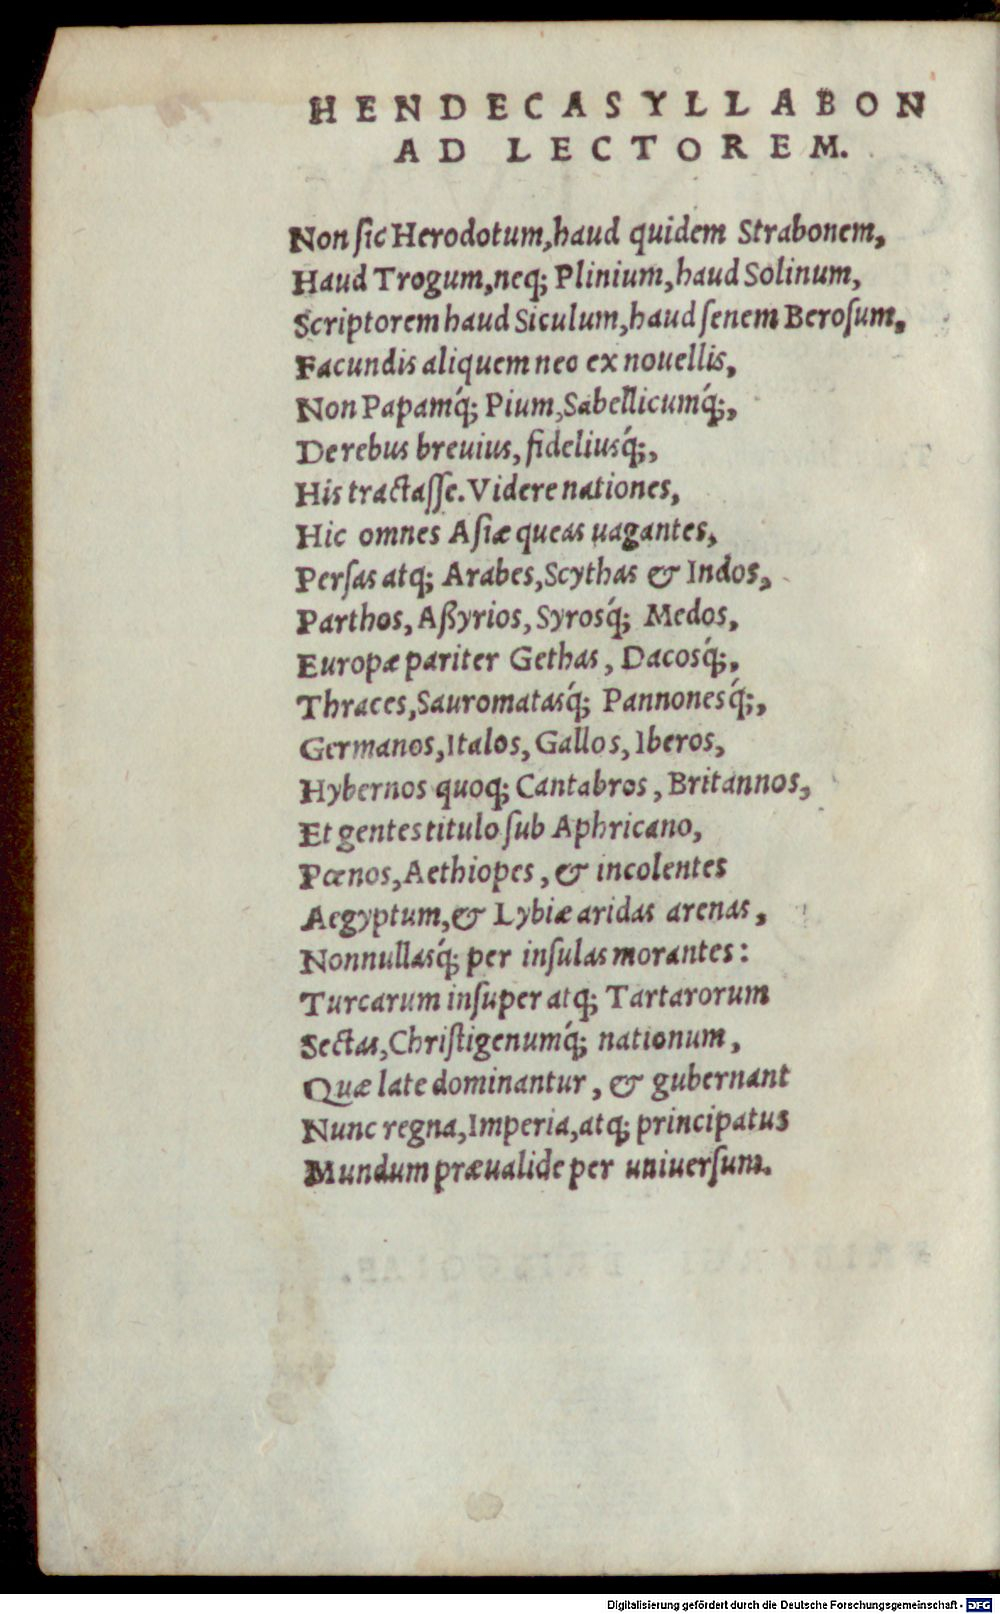 HENDECASYLLABON
AD LECTOREM.
Non ſic Herodotum, haud quidem Strabonem,
Haud Trogum, neq; Plinium, haud Solinum,
Scriptorem haud Siculum, haud ſenem Beroſum,
Facundis aliquem neo ex nouellis,
Non Papamq́; Pium, Sabellicumq́;,
De rebus breuius, fideliusq́;,
His tractaſſe. Videre nationes,
Hic omnes Aſiæ queas uagantes,
Perſas atq; Arabes, Scythas & Indos,
Parthos, Aßyrios, Syrosq́; Medos,
Europæ pariter Gethas, Dacosq́;,
Thraces, Sauromatasq́; Pannonesq́;,
Germanos, Italos, Gallos, Iberos,
Hybernos quoq; Cantabros, Britannos,
Et gentes titulo ſub Aphricano,
Pœnos, Aethiopes, & incolentes
Aegyptum, & Lybiæ aridas arenas,
Nonnullasq́; per inſulas morantes:
Turcarum inſuper atq; Tartarorum
Sectas, Chriſtigenumq́; nationum,
Quæ late dominantur, & gubernant
Nunc regna, Imperia, atq; principatus
Mundum præualide per uniuerſum.
Digitalisierung gefördert durch die Deutsche Forschungsgemeinschaft - DFG